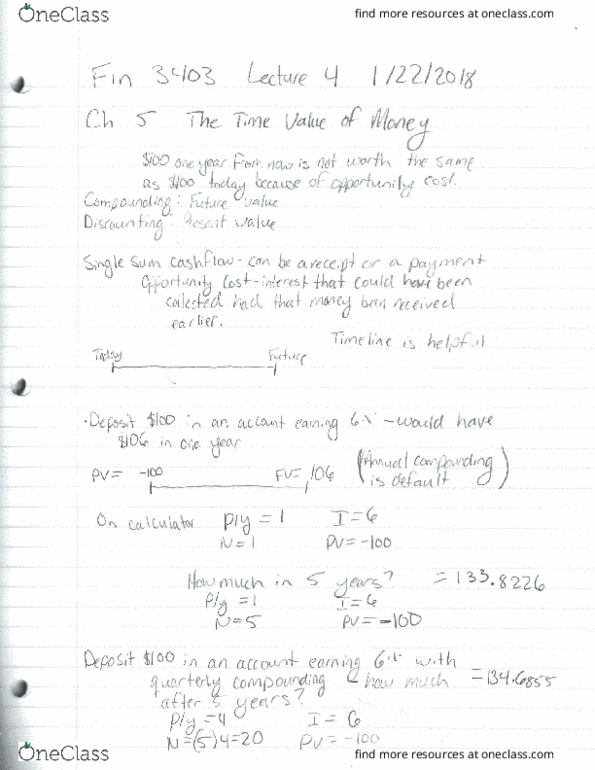 OneClass
find more resources at oneclass.com
Fin 3403 Lecture 4 1/22/2018
Ch 5 The Time Value of Money
$100 one year from now is not worth the same
as $100 today because of opportunity cost.
Compounding: Future value
Discounting: Present value
Single sum cashflow - can be a receipt or a payment
Opportunity cost - interest that could have been
collected had that money been received
earlier.
Timeline is helpful
Today Future
·Deposit $100 in an account earning 6% - would have
$106 in one year
PV= -100 FV= 106 (Annual compounding
is default)
On calculator P/y = 1 I=6
N=1 PV= -100
How much in 5 years? = 133.8226
P/y = 1 I=6
N=5 PV= -100
Deposit $100 in an account earning 6% with
quarterly compounding - how much = 134.6855
after 5 years?
P/y = 4 I = 6
N=(5)4=20 PV= -100
OneClass
find more resources at oneclass.com